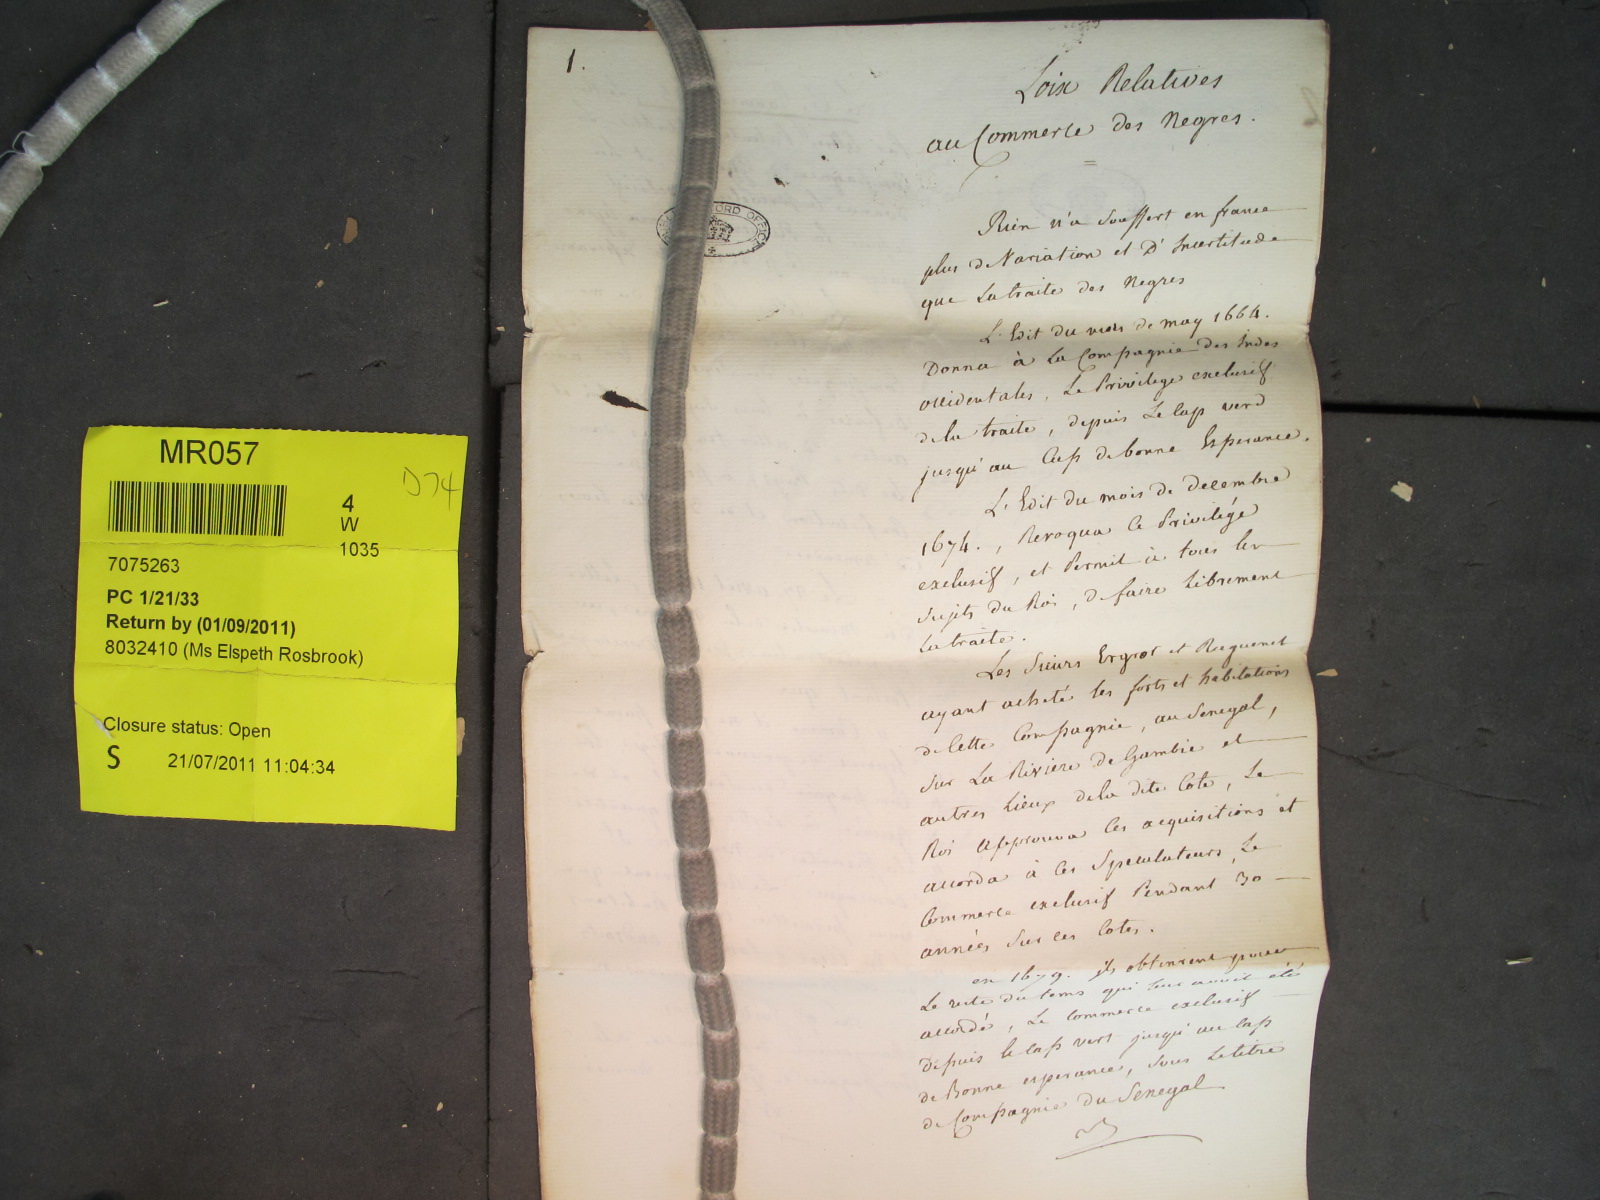 MR057
D74
4
W
1035
7075263
PC 1/21/33
Return by (01/09/2011)
8032410 (Ms Elspeth Rosbrook)
Closure status: Open
S 21/07/2011 11:04:34
1.
Loix Relatives
au Commerce des Negres.
Rien n'a Souffert en france
plus de Variation et D'Incertitude
que La traite des Negres
L'Edit du mois de may 1664.
Donna à La Compagnie des Indes
occidentales, Le Privilege exclusif
de la traite, depuis Le Cap verd
jusqu'au Cap de bonne Esperance.
L'Edit du mois de Decembre
1674., Revoqua Ce Privilége
exclusif, et Permit à tous les
Sujets du Roi, de faire Librement
La traite.
Les Sieurs et Raguenet
ayant acheté les forts et habitations
de Cette Compagnie, au Senegal,
Sur La Riviere de Gambie et
autres Lieux de la dite Cote, Le
Roi approuva Ces acquisitions et
accorda à Ces Speculateurs, Le
Commerce exclusif Pendant 30
années Sur ces Cotes.
en 1679. ils obtinrent pour
Le reste du tems qui leur avoit été
accordé, Le Commerce exclusif
Depuis le Cap vert jusqu'au Cap
de Bonne esperance, Sous Le titre
de Compagnie du Senegal